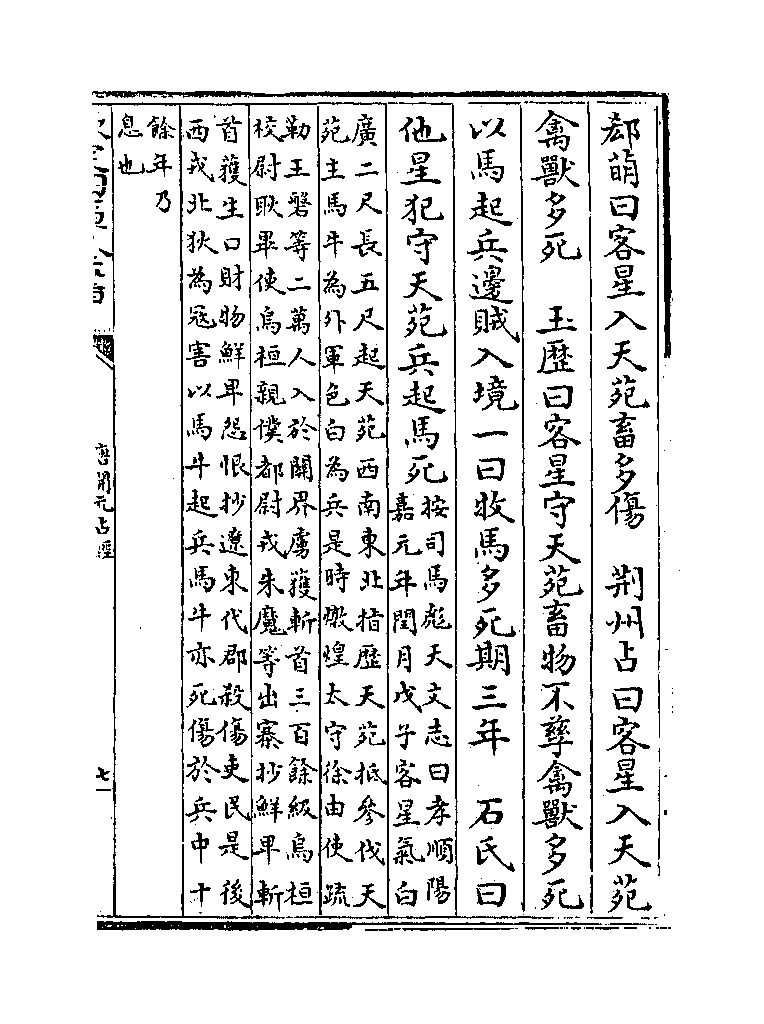 郄萌曰客星入天苑畜多傷　荆州占曰客星入天苑
禽獸多死　玉歴曰客星守天苑畜物不孳禽獸多死
以馬起兵邊賊入境一曰牧馬多死期三年　石氏曰
他星犯守天苑兵起馬死
按司馬彪天文志曰孝順陽
嘉元年閏月戊子客星氣白
廣二尺長五尺起天苑西南東北指歴天苑抵參伐天
苑主馬牛為外軍色白為兵是時燉煌太守徐由使疏
勒王磐等二萬人入於闐界虜獲斬首三百餘級烏桓
校尉耿畢使烏桓親僕都尉戎朱魔等出寨抄鮮卑斬
首獲生口財物鮮卑怨恨抄遼東代郡殺傷吏民是後
西戎北狄為冦害以馬牛起兵馬牛亦死傷於兵中十
餘年乃
息也
唐開元占經
七一